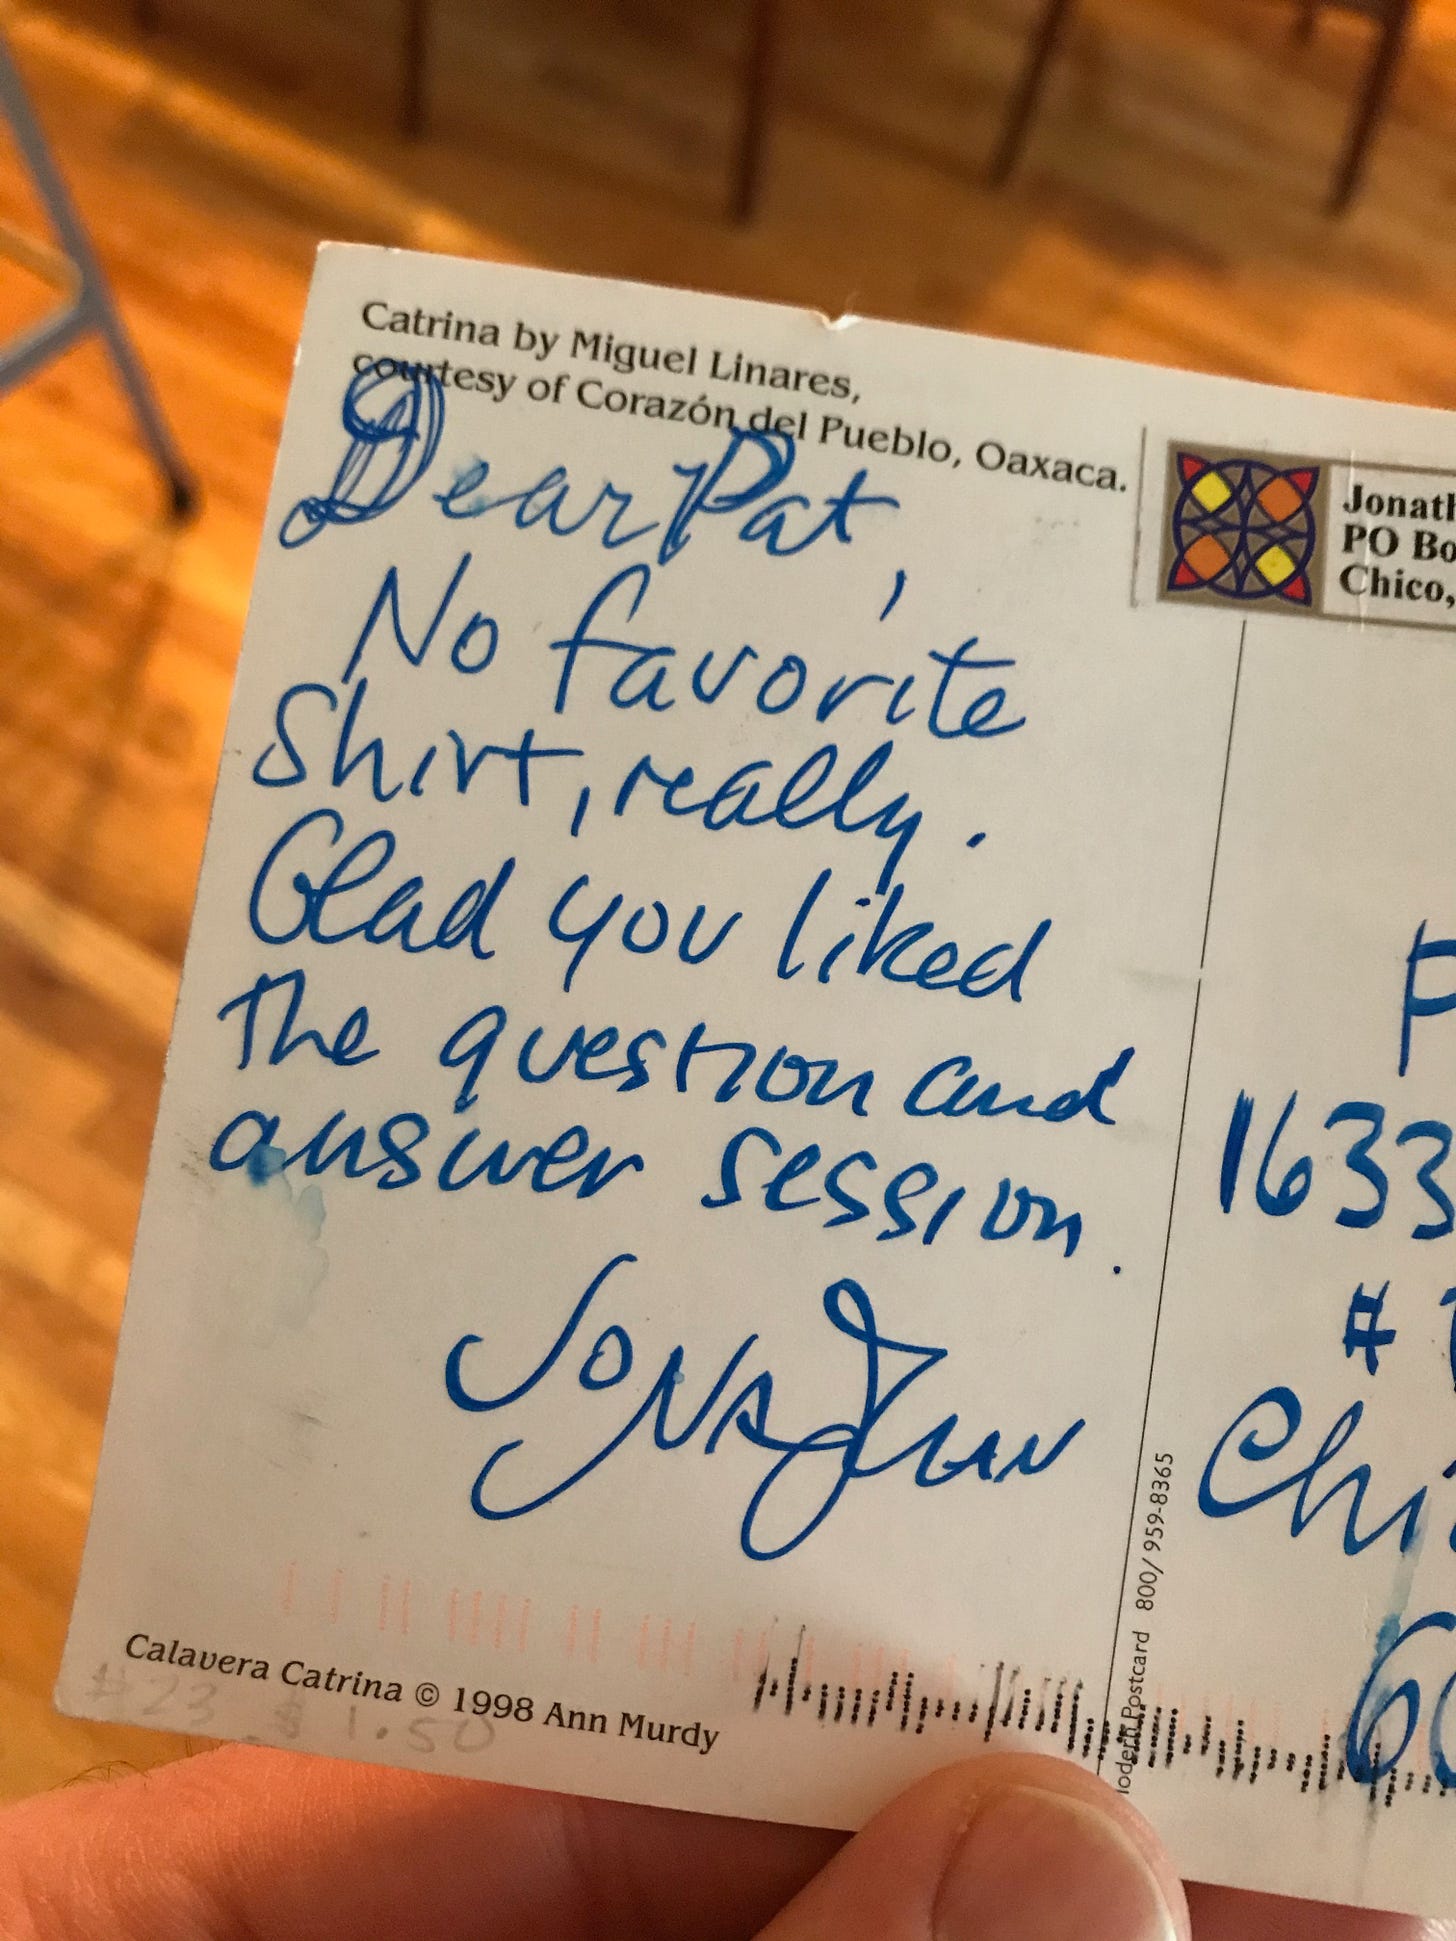 Catrina by Miguel Linares,
courtesy of Corazón del Pueblo, Oaxaca.
Dear Pat,
No favorite
shirt, really.
Glad you liked
the question and
answer session.
Jonathan
Calavera Catrina © 1998 Ann Murdy
#23 $1.50
Postcard 800/959-8365
Jonath
PO Bo
Chico,
P
1633
#
Chi
60